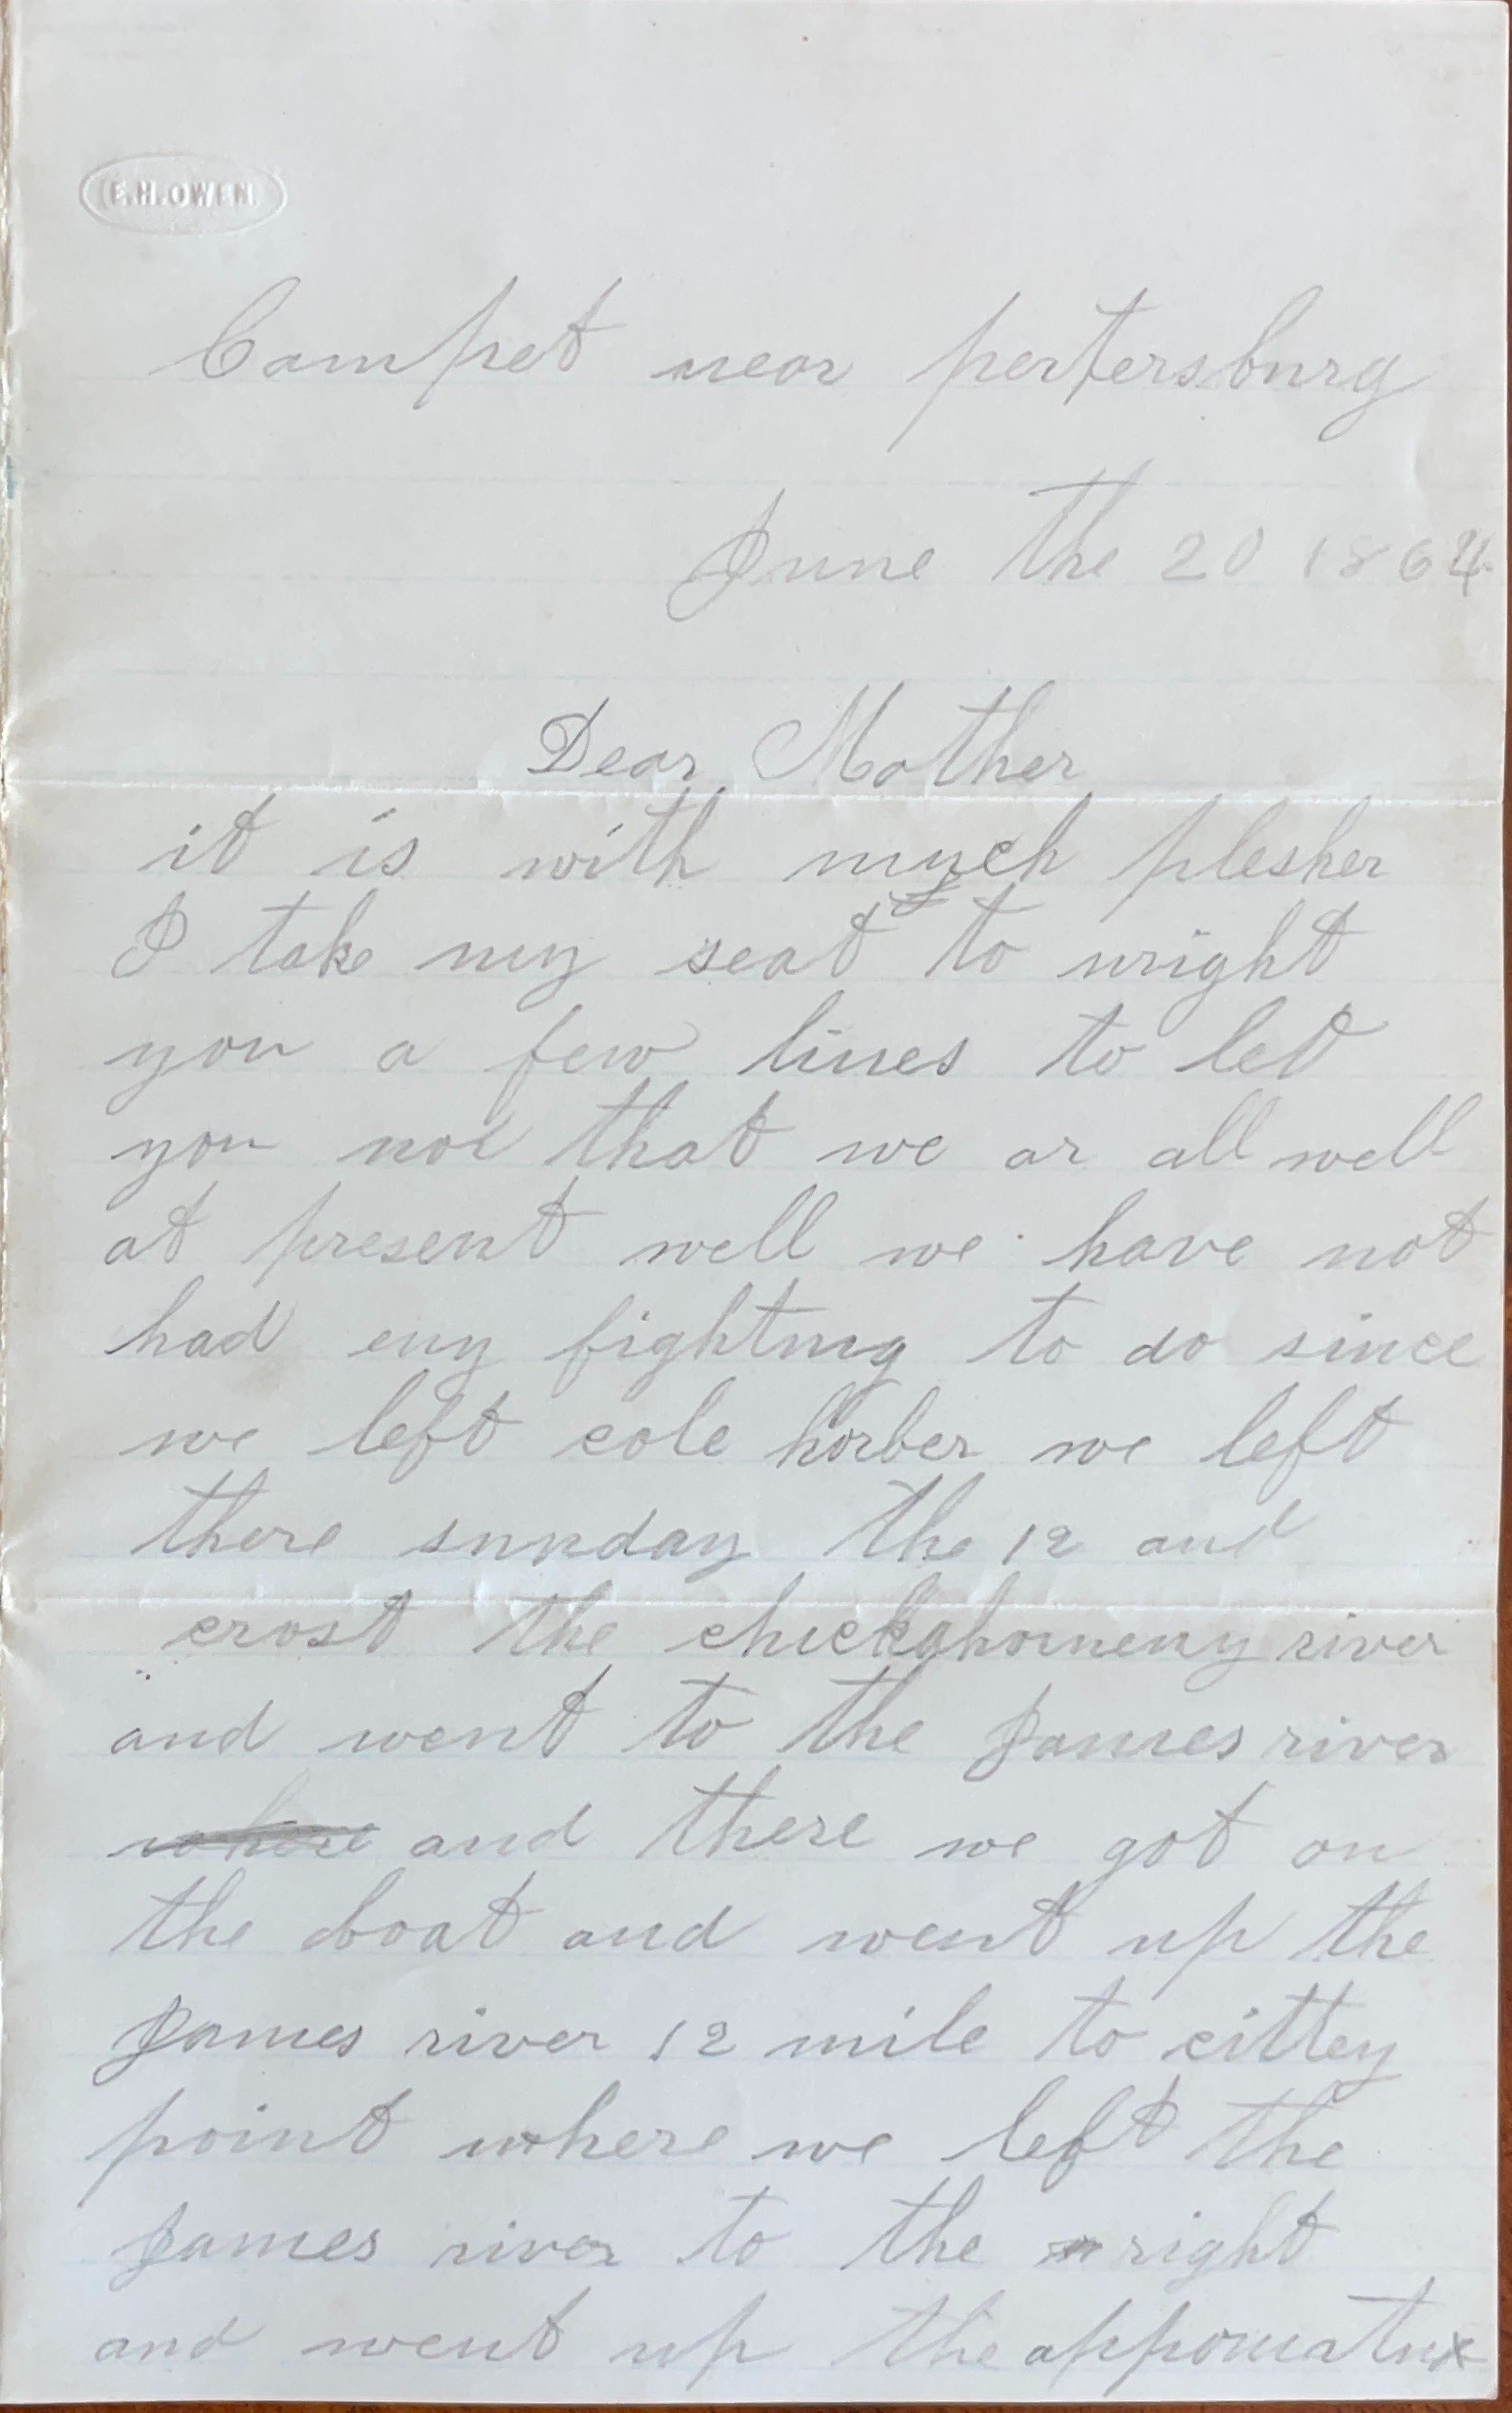 E.H.OWEN
Campet near pertersburg
June the 20 1864
Dear Mother
it is with much plesher
I take my seat to wright
you a few lines to let
you noe that we ar all well
at present well we have not
had eny fighting to do since
we left cole horber we left
there sunday the 12 and
crost the chickahomeny river
and went to the James river
where and there we got on
the boat and went up the
James river 12 mile to cittey
point where we left the
James river to the right
and went up the appomatux